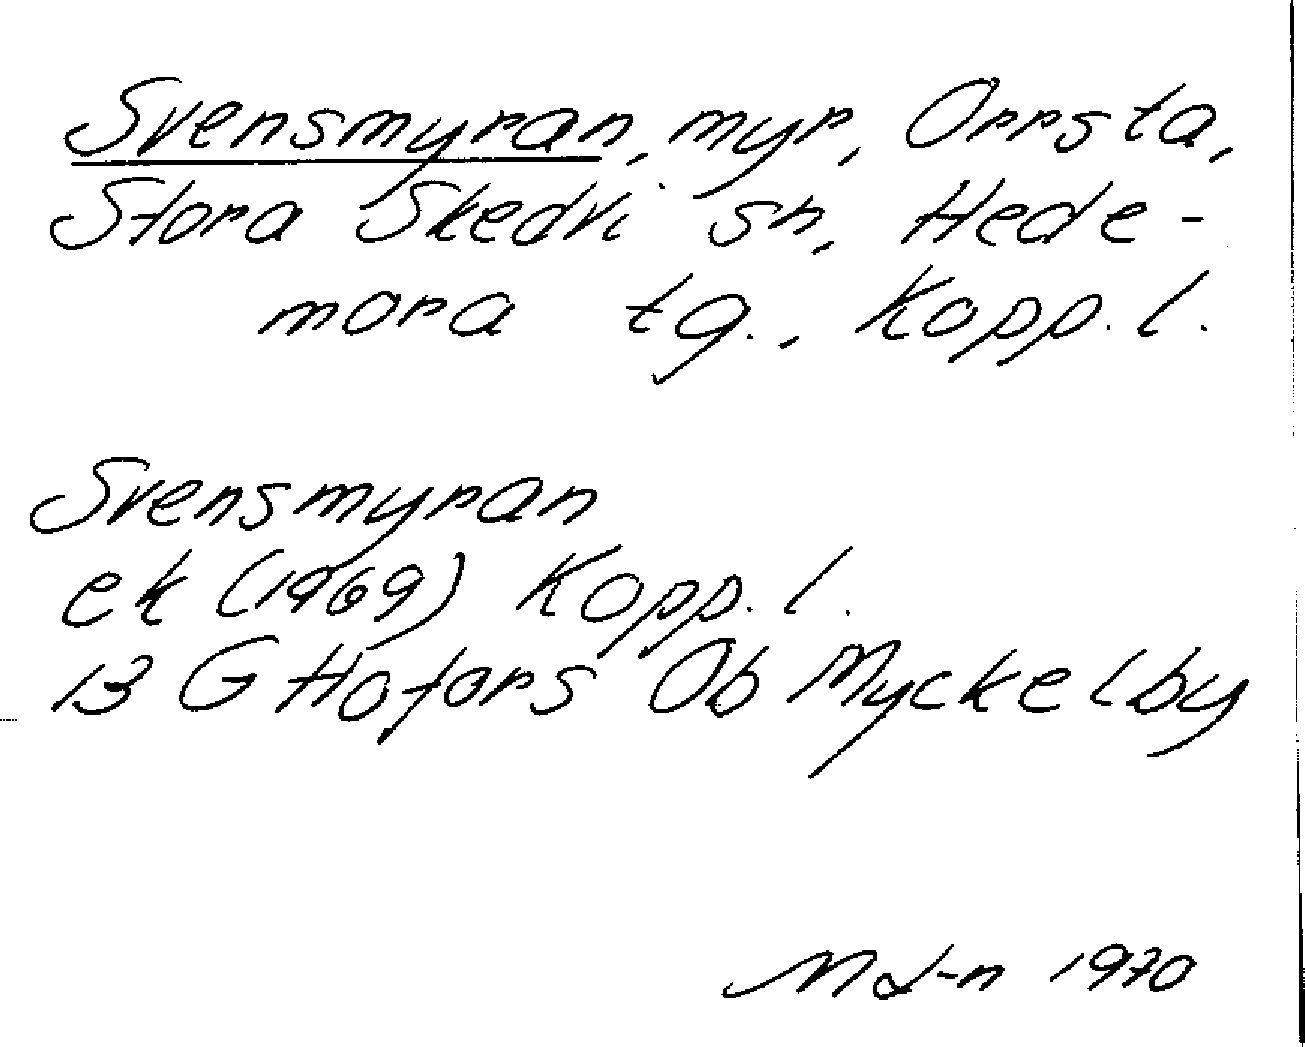 Svensmyran, myr, Orrsta,
Stora Skedvi sn, Hede-
mora tg., Kopp. l.
Svensmyran
ek (1969) Kopp. l.
13 G Hofors Ob Myckelby
1970